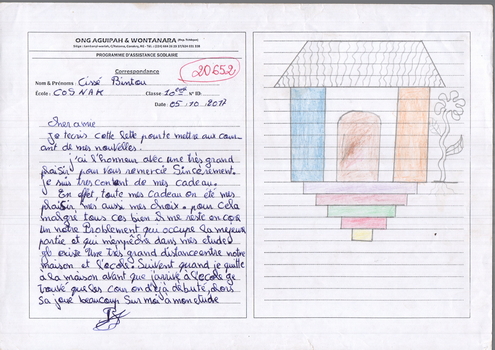 ONG AGUIPAH & WONTANARA
PROGRAMME D'ASSISTANCE SCOLAIRE
Correspondance
20652
Nom & Prénoms : Cissé Bintou
École : COSNAK Classe : 10ème N°
Date : 05.10.2017
Cher amie
Je t'ecris cette lette pour te mettre au cou-
ant de mes nouvelles.
j'ai l'honneur avec une très grand
plaisir pour vous remercié Sincèrement.
je suis très content de mes cadeau.
En effet, toute mes cadeau on été mes
plaisir mes aussi mes choix. pour cela
malgré tous ces bien il me reste encore
un notre Problement qui occupe la majeur
partie et qui m'empêche dans mes etude
il existe une très grand distance entre notre
maison et l'école. Suivent quand je quitte
a la maison avant que j'arrive à l'école je
trouve que les cour on déjà débuté, alors
sa joue beaucoup Sur moi a mon etude